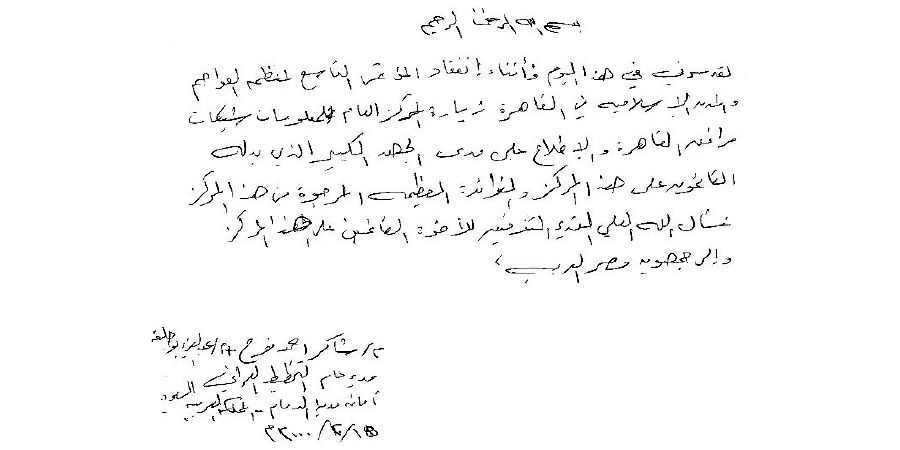 بسم الله الرحمن الرحيم
لقد سرني في هذا اليوم وأثناء إنعقاد المؤتمر التاسع لمنظمة العواصم
والمدن الإسلامية في القاهرة زيارة المركز العام للمعلومات شبكات
مرافق القاهرة والإطلاع على مدى الجهد الكبير الذي بذله
القائمون على هذا المركز والفوائد العظيمه المرجوة من هذا المركز
نسأل الله العلي القدير التوفيق للأخوة القائمين على هذا المركز
والى جمهورية مصر العربيه
م/ شاكر احمد مفرح
مدير عام التخطيط العمراني
أمانة مدينة الدمام - المملكة العربيه السعوديه
٢٠٠٠م